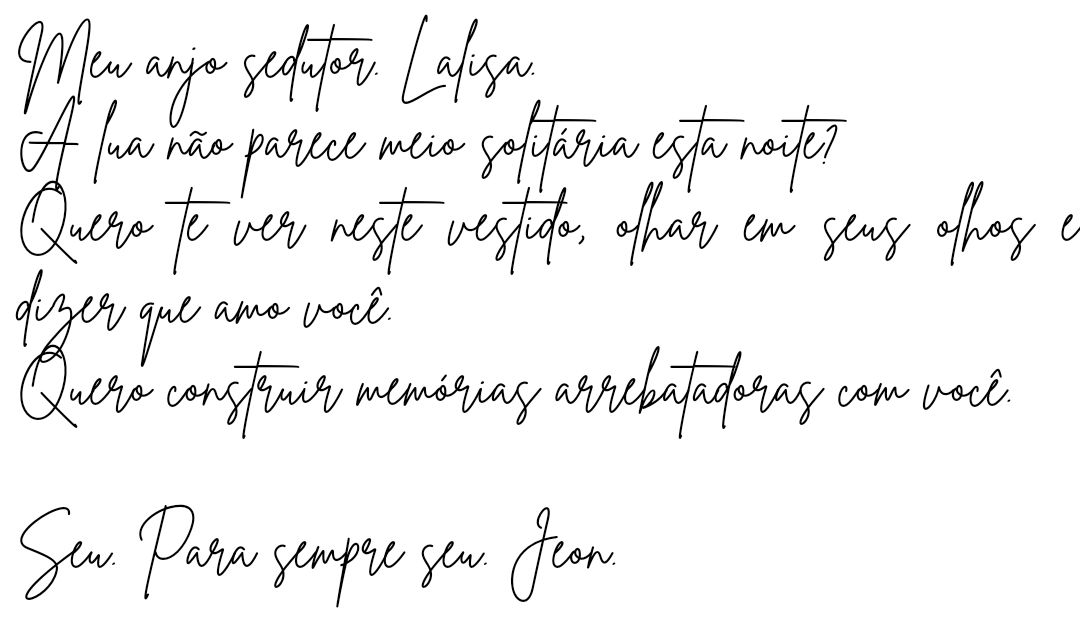 Meu anjo sedutor. Lalisa.
A lua não parece meio solitária esta noite?
Quero te ver neste vestido, olhar em seus olhos e
dizer que amo você.
Quero construir memórias arrebatadoras com você.
Seu. Para sempre seu. Jeon.